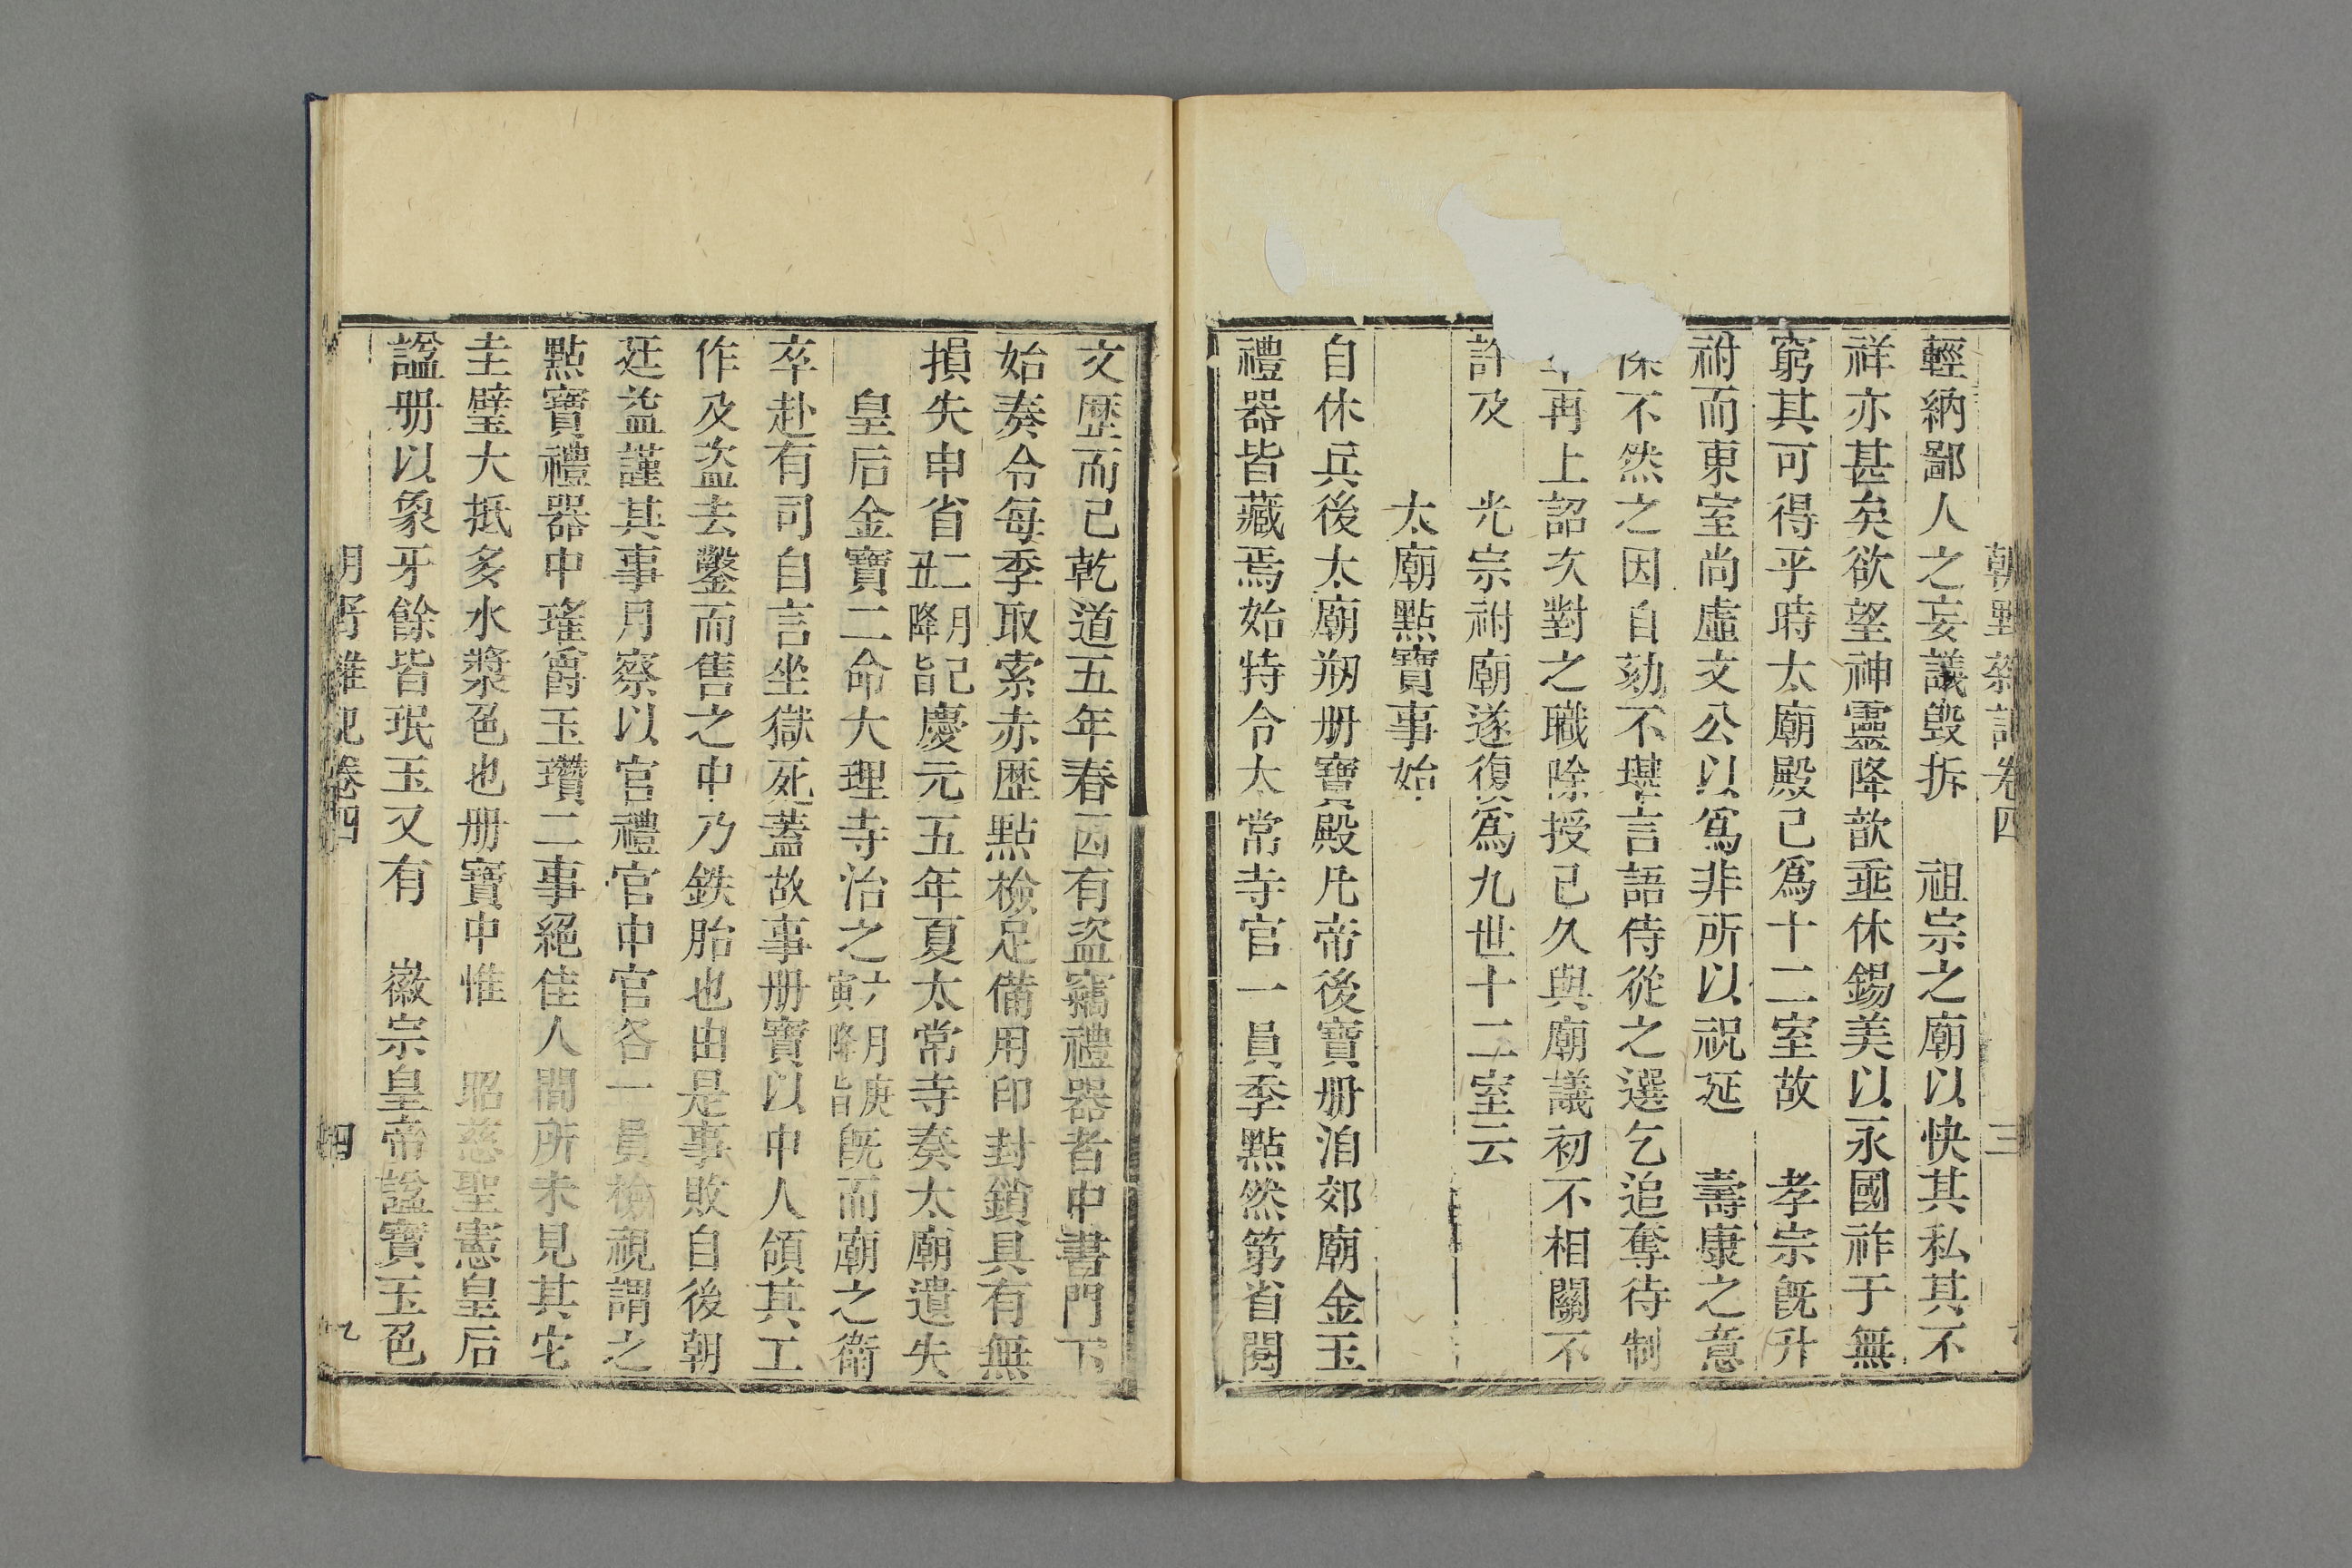 輕納鄙人之妄議毁拆　祖宗之廟以快其私其不
祥亦甚矣欲望神靈降歆垂休錫美以永國祚于無
窮其可得乎時太廟殿已爲十二室故　孝宗旣升
祔而東室尚虛文公以爲非所以祝延　壽康之意
深不然之因自劾不堪言語侍從之選乞追奪待制
再上詔次對之職除授已久與廟議初不相關不
許及　光宗祔廟遂復爲九世十二室云
太廟點寶事始
自休兵後太廟刱册寶殿凡帝後寶册洎郊廟金玉
禮器皆藏焉始特令太常寺官一員季點然第省閱
文歷而已乾道五年春因有盜竊禮器者中書門下
始奏令每季取索赤歷點檢足備用印封鎖具有無
損失申省二月己丑降旨慶元五年夏太常寺奏太廟遺失
皇后金寶二命大理寺治之六月庚寅降旨旣而廟之衛
卒赴有司自言坐獄死蓋故事册寶以中人領其工
作及盗去鑿而售之中乃鉄胎也由是事敗自後朝
廷益謹其事月察以官禮官中官各一員檢視謂之
點寶禮器中瑤爵玉瓚二事絕佳人間所未見其它
圭璧大抵多水漿色也册寶中惟　昭慈聖憲皇后
諡册以象牙餘皆珉玉又有　徽宗皇帝諡寶玉色
卷四　四　九